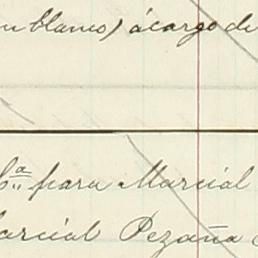 en blanco) á cargo de
Cª para Marcial
Marcial Pezaña